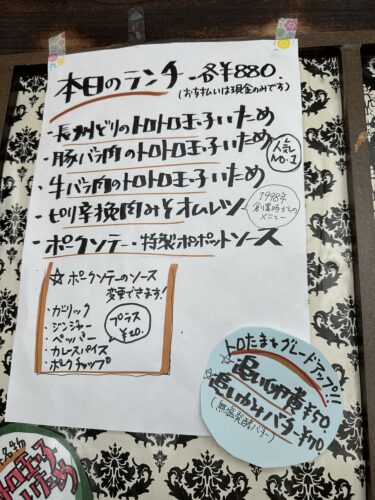 本日のランチ 各¥880.
(お支払いは現金のみです)
・長州どりのトロトロ玉子いため
・豚バラ肉のトロトロ玉子いため
人気No.1
・牛バラ肉のトロトロ玉子いため
・ピリ辛挽肉みそオムレツ
1998年
創業時からの
メニュー
・ポークソテー・特製ポポットソース
☆ポークソテーのソース
変更できます!
・ガーリック
・ジンジャー
・ペッパー
・カレースパイス
・ポークチャップ
プラス
¥20.
トロたまをグレードアップ!!
☆追い卵産¥50
☆追いうみバター¥70
(無塩発酵バター)